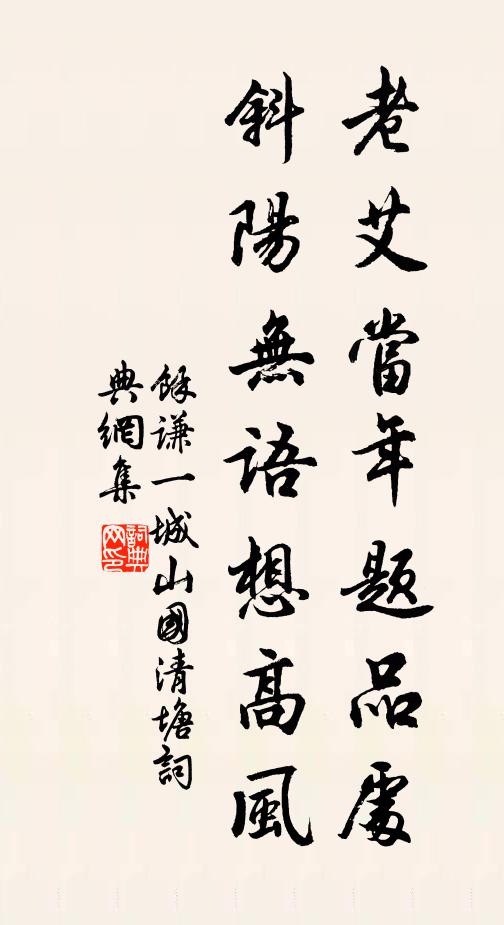 老艾當年題品處
斜陽無語想高風
餘謙一城山國清塘詞
典網集
詞典網印